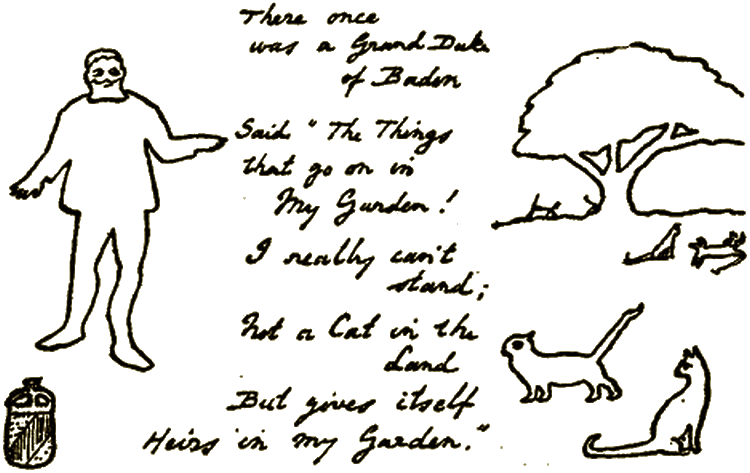 There once
was a Grand Duke
of Baden
Said "The Things
that go on in
My Garden!
I really can't
stand;
Not a Cat in the
Land
But gives itself
Heirs in my Garden."